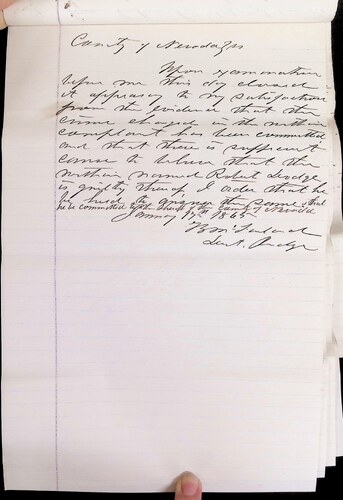 County of Nevada ss
Upon examination
before me this day closed
it appearing to my satisfaction
from the evidence that the
crime charged in the within
complaint has been committed
and that there is sufficient
cause to believe that the
within named Robert Dodge
is guilty thereof I order that he
be held to answer the same & that
he be committed to the Sheriff of the County of Nevada
January 17th 1865
County Judge